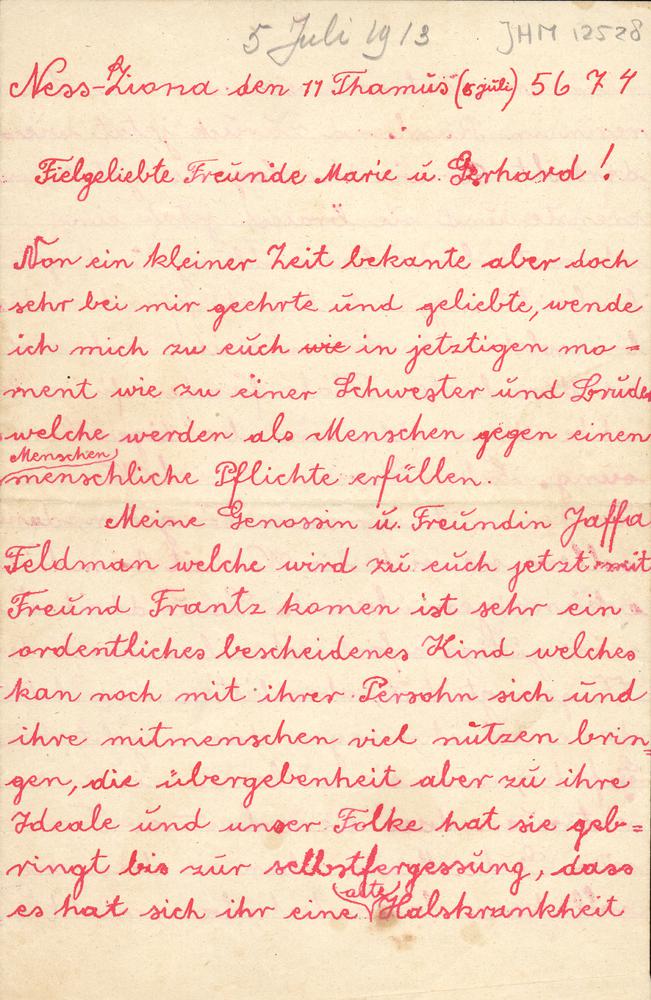 5 Juli 1913 JHM 12528
Ness-Ziona den 11 Thamus (5 juli) 5674
Fielgeliebte Freunde Marie u. Gerhard!
Von ein kleiner Zeit bekante aber doch
sehr bei mir geehrte und geliebte, wende
ich mich zu euch wie in jetztigen mo=
ment wie zu einer Schwester und Bruder
welche werden als Menschen gegen einen
Menschen
menschliche Pflichte erfüllen.
Meine Genossin u. Freundin Jaffa
Feldman welche wird zu euch jetzt mit
Freund Frantz komen ist sehr ein
ordentliches bescheidenes Kind welches
kan noch mit ihrer Persohn sich und
ihre mitmenschen viel nutzen brin=
gen, die übergebenheit aber zu ihre
Ideale und unser Folke hat sie geb=
ringt bis zur selbstfergessung, dass
es hat sich ihr eine alte Halskrankheit